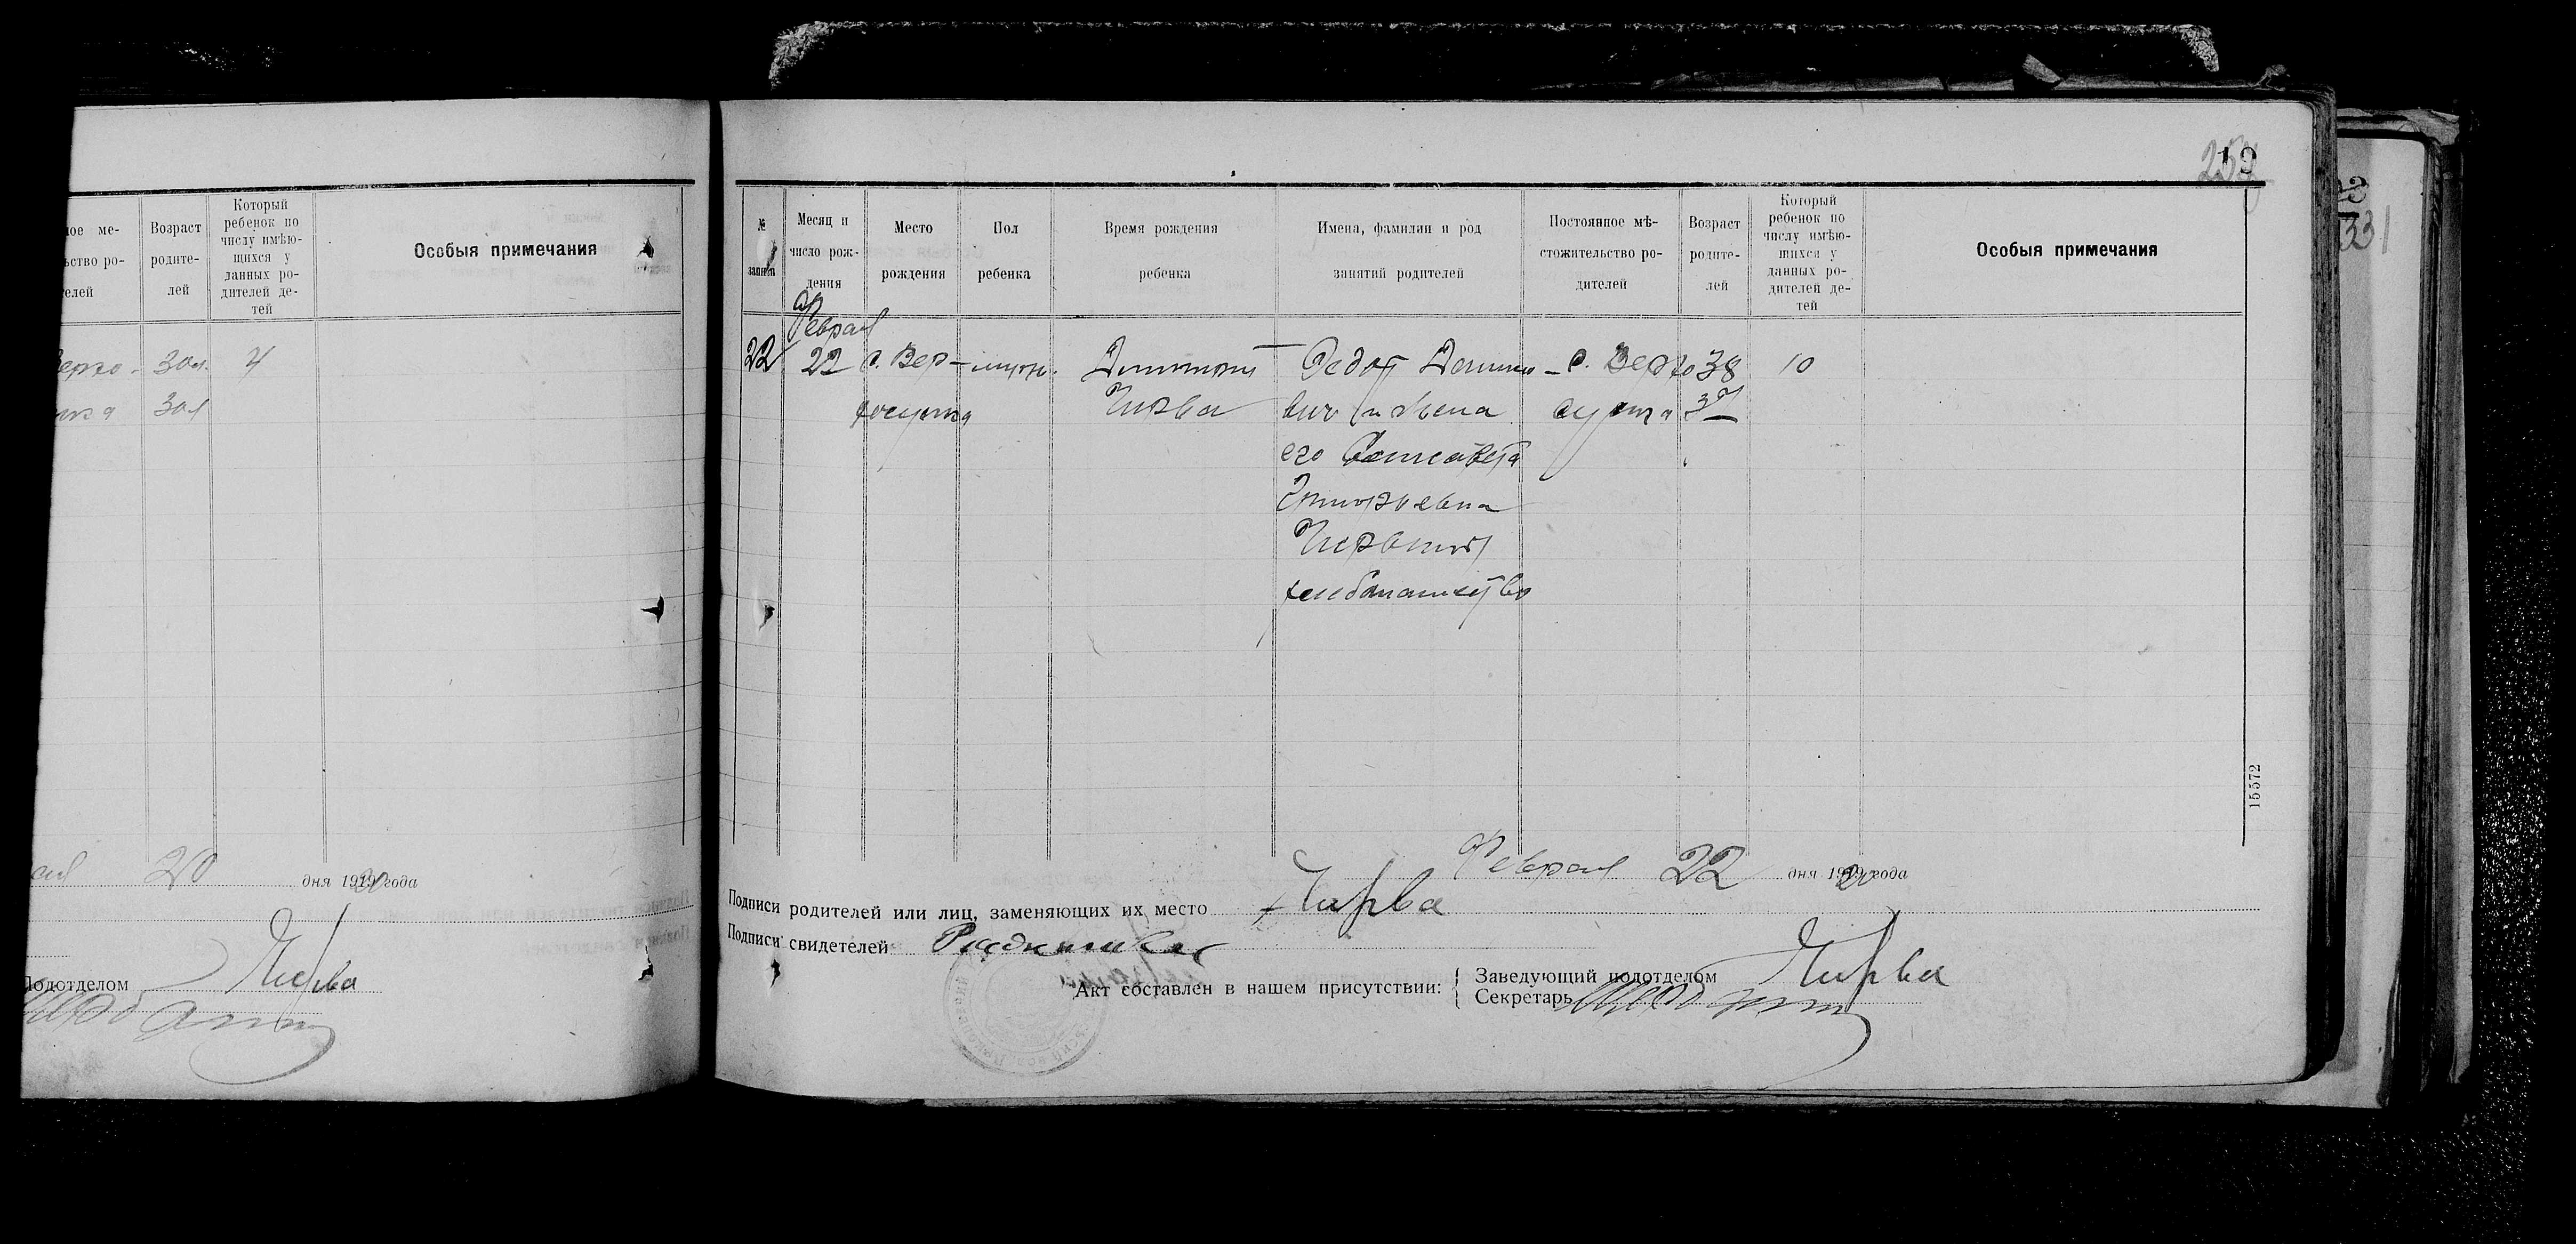 ное ме-
ьство ро-
телей
Возраст
родите-
лей
Который
ребенок по
числу имѣю-
щихся у
данных ро-
дителей де-
тей
Особыя примечания
Верхо-
30 л.
4
30 л
20
дня 1920 года
Подотделом Чирва
19
№
записи
Месяц и
число рож-
дения
Место
рождения
Пол
ребенка
Время рождения
ребенка
Имена, фамилии и род
занятий родителей
Постоянное мѣ-
стожительство ро-
дителей
Возраст
родите-
лей
Который
ребенок по
числу имѣю-
щихся у
данных ро-
дителей де-
тей
Особыя примечания
22
Феврал
22
с. Вер-
хосулка
мужс.
Димитрий
Чирва
Федот Данило-
вич и жена
его Елисавета
Григорьевна
Чирвины
хлебопашество
с. Верхо
сулка
38
37
10
15572
Феврал 22 дня 1920 года
Подписи родителей или лиц, заменяющих их место Чирва
Подписи свидетелей
Акт составлен в нашем присутствии:
Заведующий подотделом Чирва
Секретарь
331